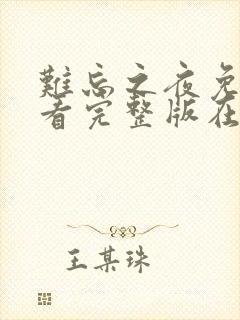 難忘之夜免
看完整版在
王某珠